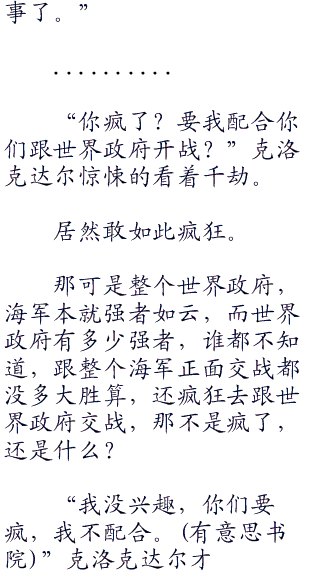 事了。”
..........
“你疯了？要我配合你
们跟世界政府开战？”克洛
克达尔惊悚的看着千劫。
居然敢如此疯狂。
那可是整个世界政府，
海军本就强者如云，而世界
政府有多少强者，谁都不知
道，跟整个海军正面交战都
没多大胜算，还疯狂去跟世
界政府交战，那不是疯了，
还是什么？
“我没兴趣，你们要
疯，我不配合。(有意思书
院)”克洛克达尔才